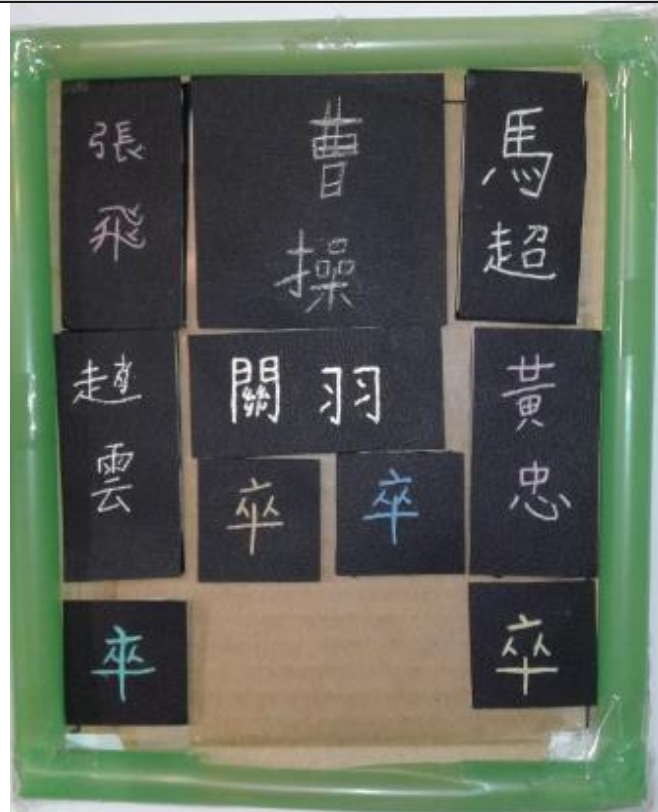 張飛
曹操
馬超
趙雲
關羽
黃忠
卒
卒
卒
卒